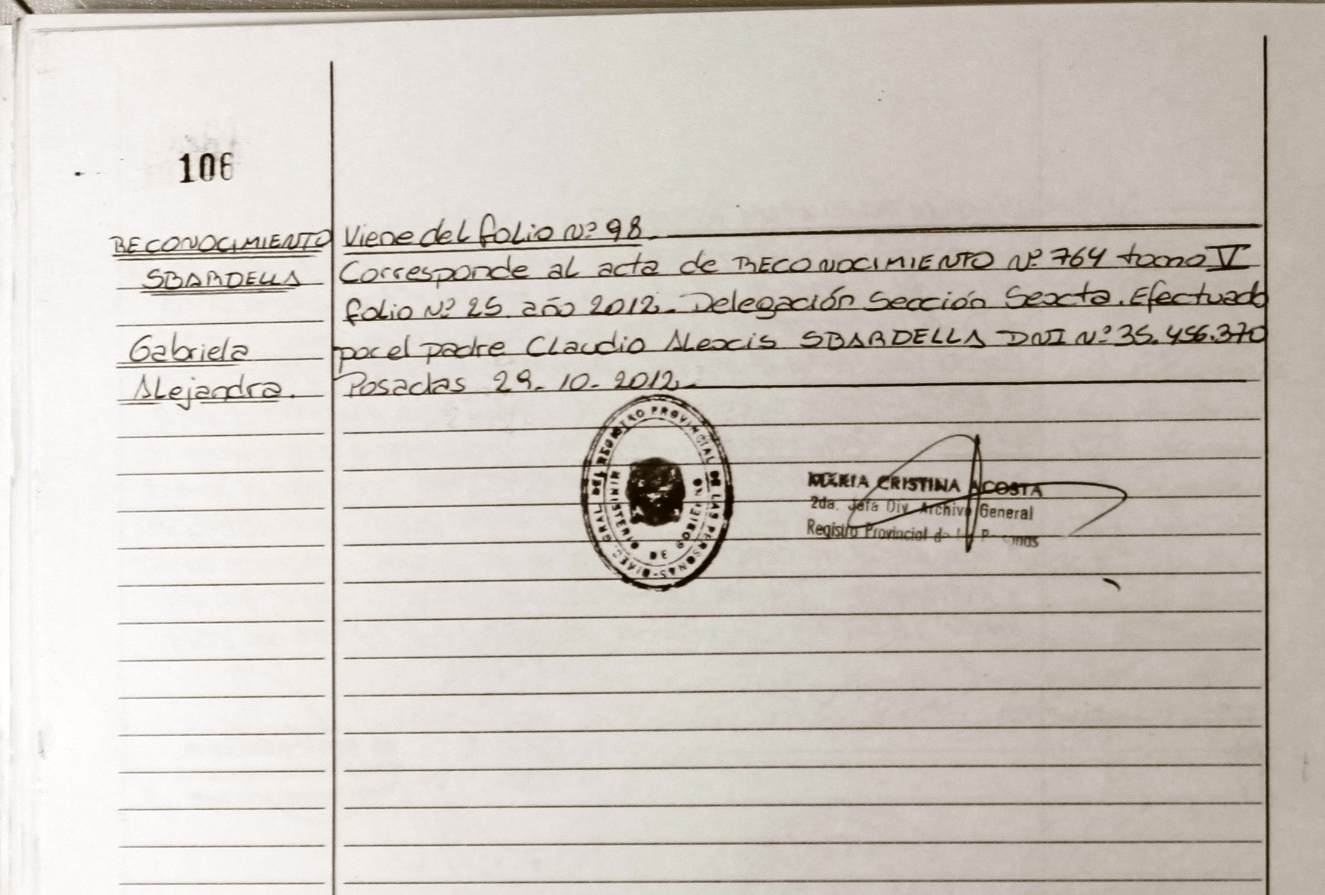 106
RECONOCIMIENTO
SBARDELLA
Gabriela
Alejandra.
Viene del folio Nº 98
Corresponde al acta de RECONOCIMIENTO Nº 764 tomo V
folio Nº 25 año 2012. Delegación Sección Sexta. Efectuado
por el padre Claudio Alexis SBARDELLA DNI Nº 35.456.370
Posadas 29-10-2012.
DIREC. GRAL. DEL REGISTRO PROVINCIAL DE LAS PERSONAS
MINISTERIO DE GOBIERNO
MARIA CRISTINA ACOSTA
2da. Jefa Div. Archivo General
Registro Provincial de